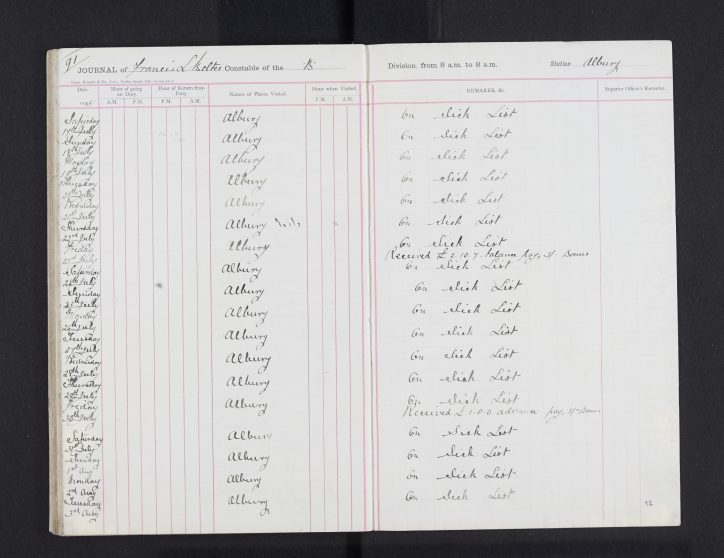 91
JOURNAL of Francis L Holton Constable of the B Division. from 8 a.m. to 8 a.m. Station Albury
Date. Hour of going on Duty. Hour of Return from Duty. Names of Places Visited. Hour when Visited. REMARKS, &c. Superior Officer's Remarks.
A.M. P.M. P.M. A.M. P.M. A.M.
Saturday 17th July Albury On Sick List
Sunday 18th July Albury On Sick List
Monday 19th July Albury On Sick List
Tuesday 20th July Albury On Sick List
Wednesday 21st July Albury On Sick List
Thursday 22nd July Albury On Sick List
Friday 23rd July Albury On Sick List
Received £2.10.7. balance pay, 3/- Bonus
Saturday 24th July Albury On Sick List
Sunday 25th July Albury On Sick List
Monday 26th July Albury On Sick List
Tuesday 27th July Albury On Sick List
Wednesday 28th July Albury On Sick List
Thursday 29th July Albury On Sick List
Friday 30th July Albury On Sick List
Received £1-0-0 advance pay, 3/- Bonus
Saturday 31st July Albury On Sick List
Sunday 1st Aug Albury On Sick List
Monday 2nd Aug Albury On Sick List
Tuesday 3rd Aug Albury On Sick List